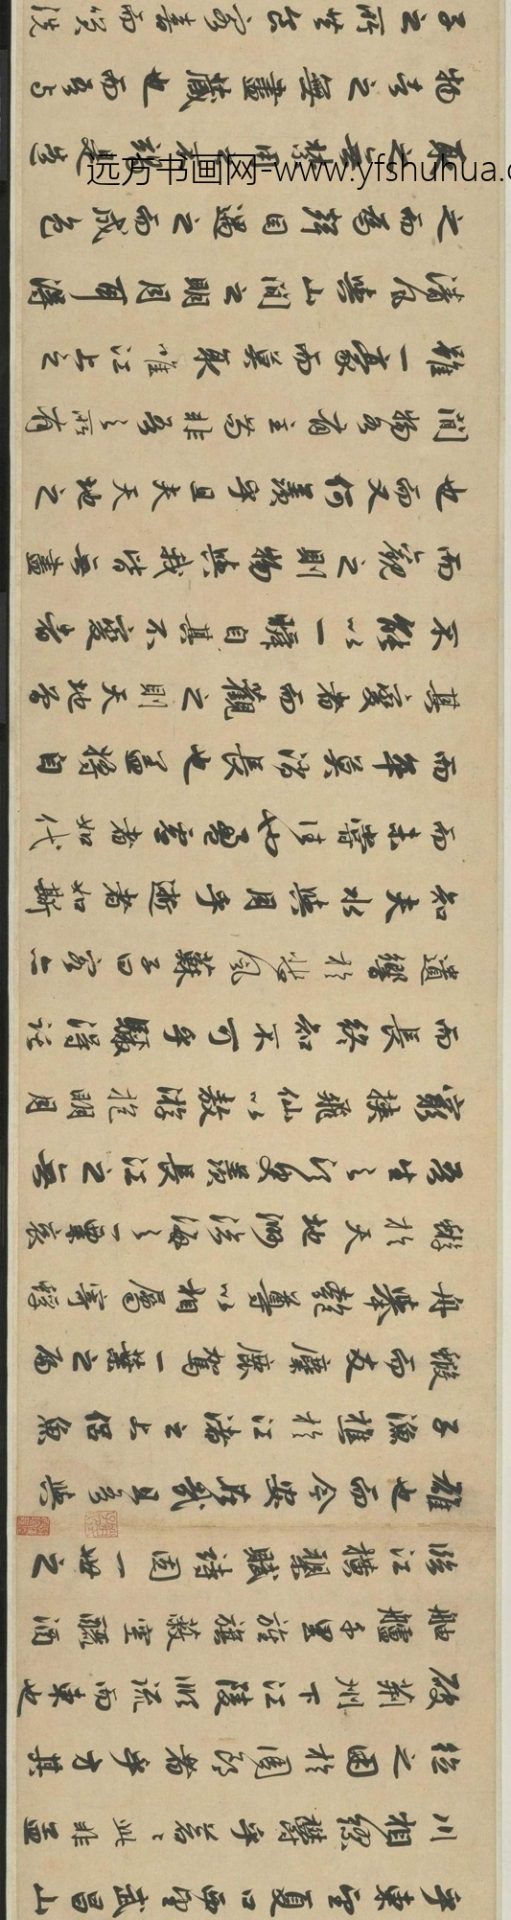 乎東望夏口西望武昌山
川相繆鬱乎蒼〻此非孟
德之困於周郎者乎方其
破荊州下江陵順流而東也
舳艫千里旌旗蔽空釃酒
臨江橫槊賦詩固一世之
雄也而今安在哉且吾與
子漁樵於江渚之上侶魚
鰕而友麋鹿駕一葉之扁
舟舉匏尊以相屬寄蜉
蝣於天地渺滄海之一粟哀
吾生之須臾羨長江之無
窮挾飛仙以遨游抱明月
而長終知不可乎驟得託
遺響於悲風蘇子曰客亦
知夫水與月乎逝者如斯
而未嘗往也盈虛者如代
而卒莫消長也蓋將自
其變者而觀之則天地曾
不能以一瞬自其不變者
而觀之則物與我皆無盡
也而又何羨乎且夫天地之
間物各有主苟非吾之所有
雖一毫而莫取惟江上之
清風與山間之明月耳得
之而為聲目遇之而成色
取之無禁用之不竭是造
物者之無盡藏也而吾與
子之所共食客喜而笑洗
远方书画网-www.yfshuhua.c